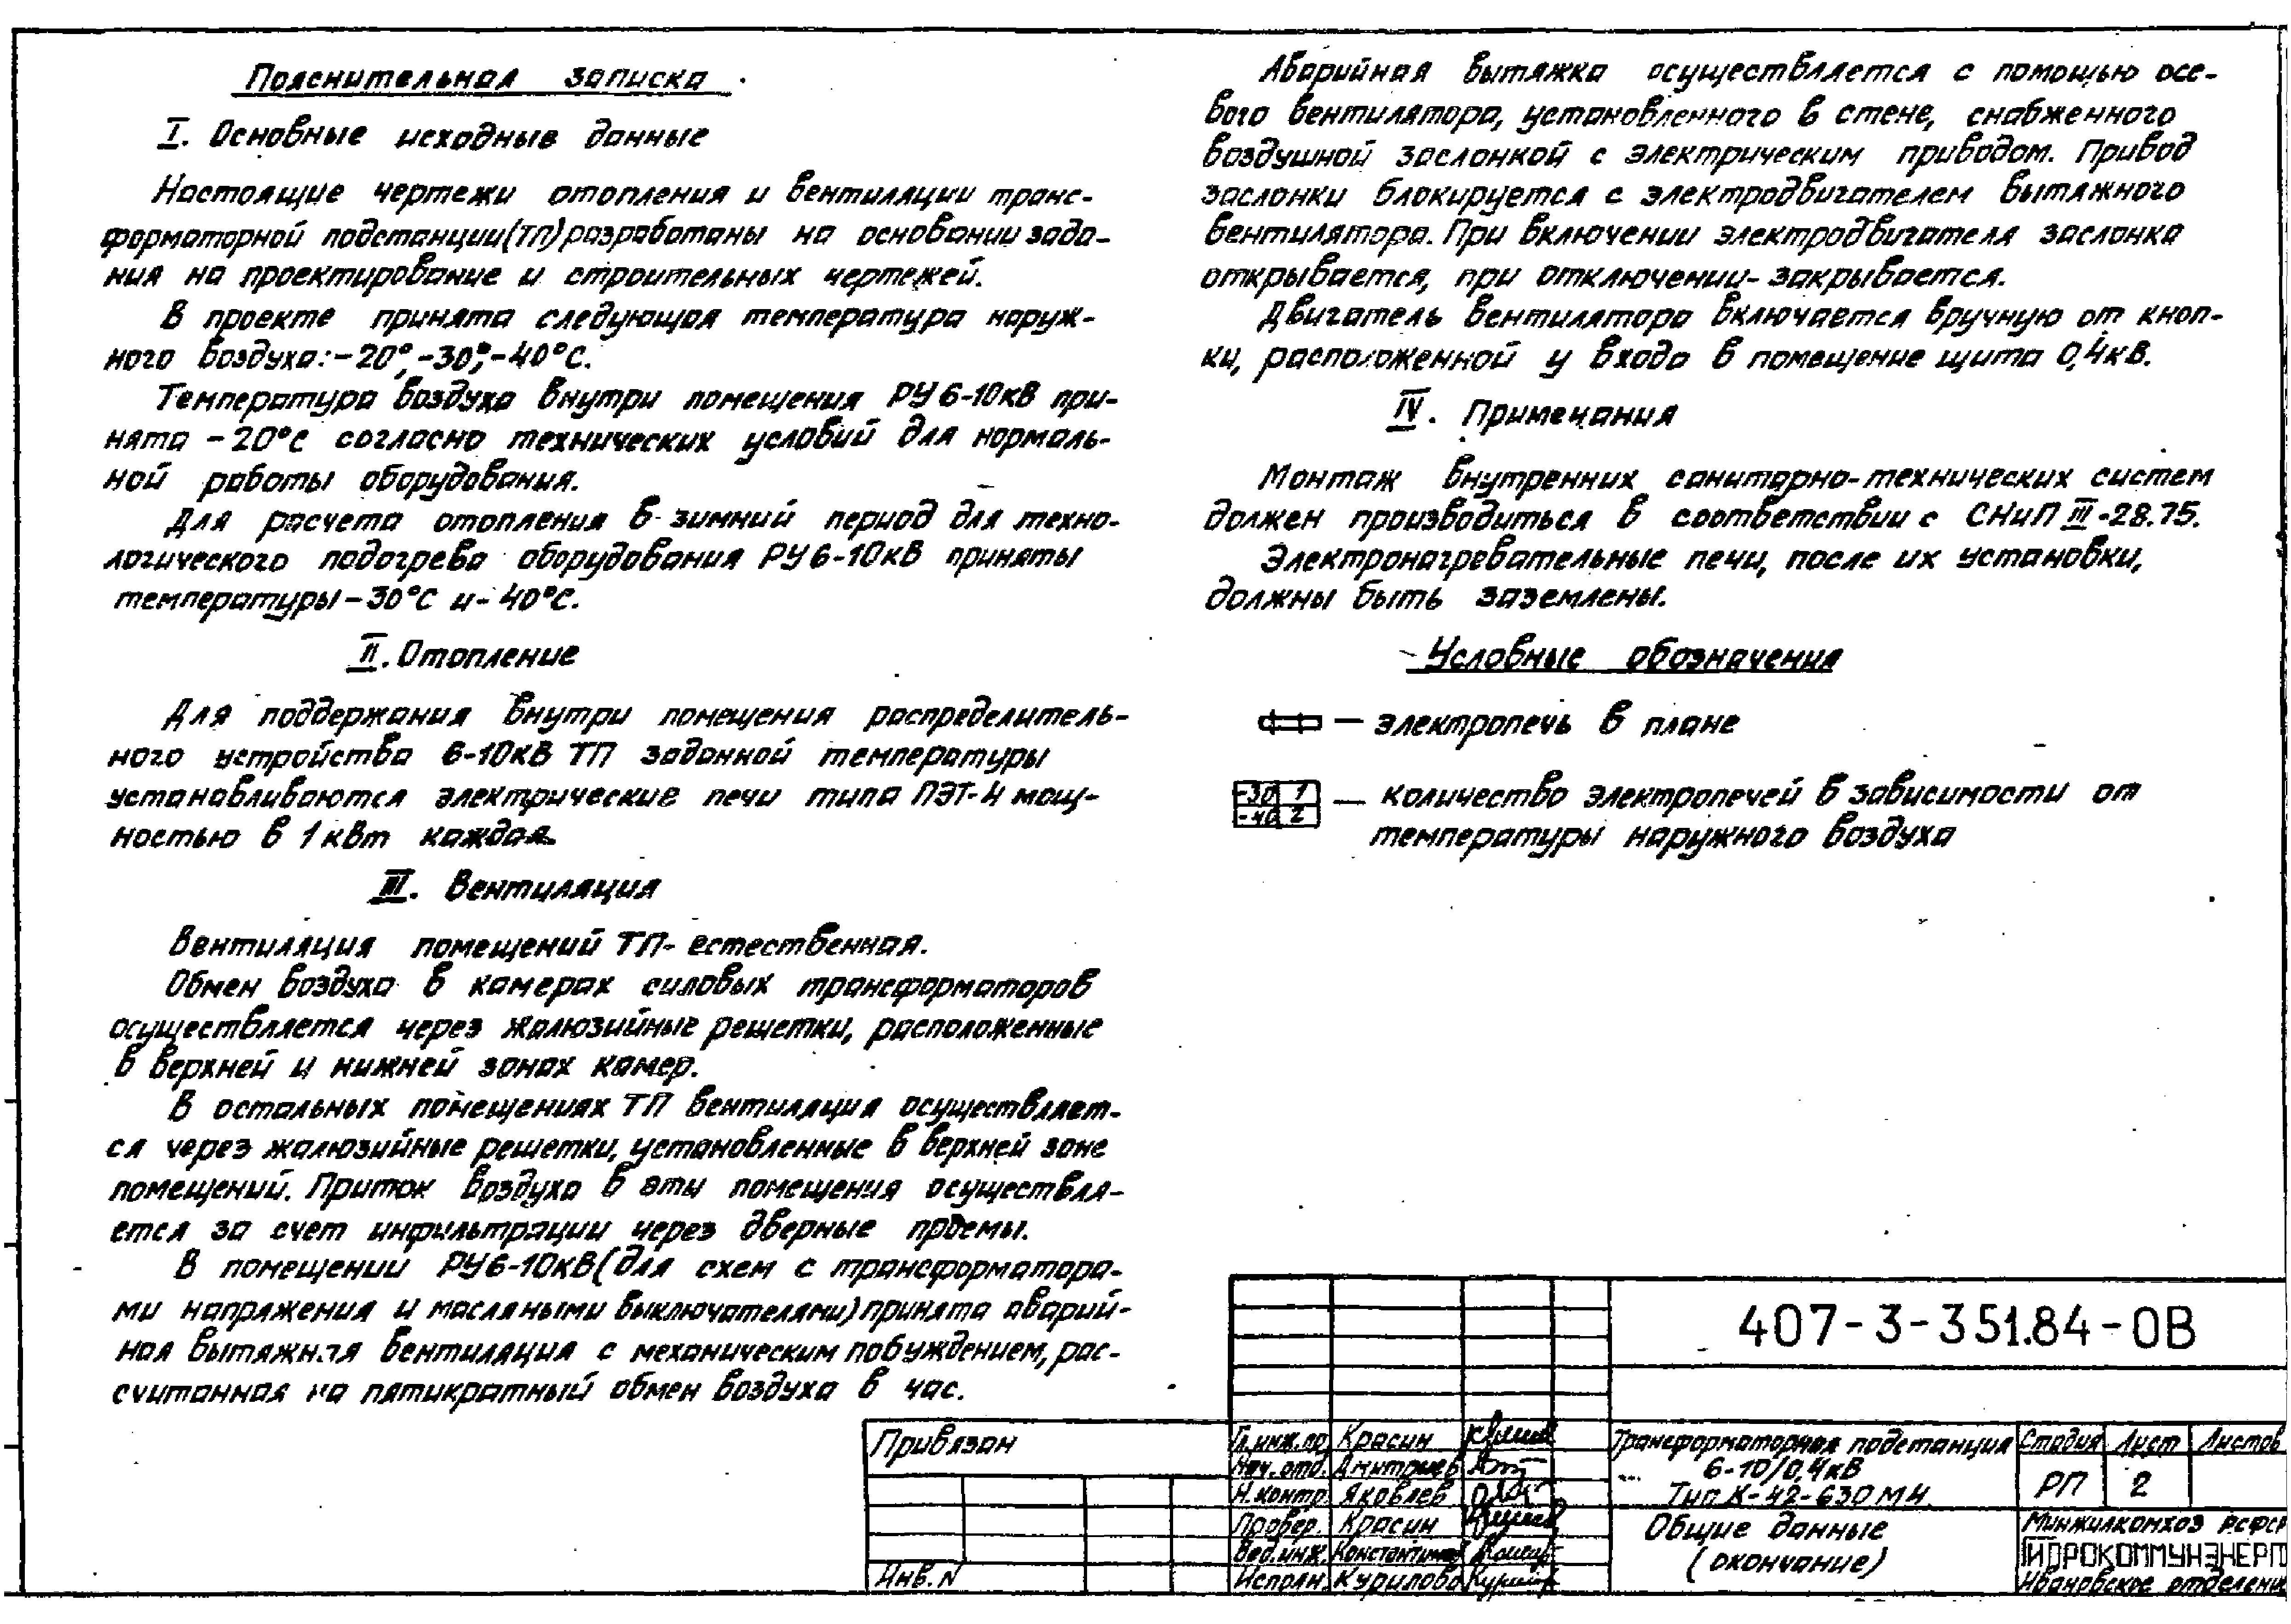 Пояснительная записка
I. Основные исходные данные
Настоящие чертежи отопления и вентиляции транс-
форматорной подстанции (ТП) разработаны на основании зада-
ния на проектирование и строительных чертежей.
В проекте принята следующая температура наруж-
ного воздуха: -20°, -30°, -40°С.
Температура воздуха внутри помещения РУ 6-10кВ при-
нята -20°С согласно технических условий для нормаль-
ной работы оборудования.
Для расчета отопления в зимний период для техно-
логического подогрева оборудования РУ 6-10кВ приняты
температуры -30°С и -40°С.
II. Отопление
Для поддержания внутри помещения распределитель-
ного устройства 6-10кВ ТП заданной температуры
устанавливаются электрические печи типа ПЭТ-4 мощ-
ностью в 1 квт каждая.
III. Вентиляция
Вентиляция помещений ТП - естественная.
Обмен воздуха в камерах силовых трансформаторов
осуществляется через жалюзийные решетки, расположенные
в верхней и нижней зонах камер.
В остальных помещениях ТП вентиляция осуществляет-
ся через жалюзийные решетки, установленные в верхней зоне
помещений. Приток воздуха в эти помещения осуществля-
ется за счет инфильтрации через дверные проемы.
В помещении РУ6-10кВ (для схем с трансформатора-
ми напряжения и масляными выключателями) принята аварий-
ная вытяжная вентиляция с механическим побуждением, рас-
считанная на пятикратный обмен воздуха в час.
Аварийная вытяжка осуществляется с помощью осе-
вого вентилятора, установленного в стене, снабженного
воздушной заслонкой с электрическим приводом. Привод
заслонки блокируется с электродвигателем вытяжного
вентилятора. При включении электродвигателя заслонка
открывается, при отключении - закрывается.
Двигатель вентилятора включается вручную от кноп-
ки, расположенной у входа в помещение щита 0,4кВ.
IV. Примечания
Монтаж внутренних санитарно-технических систем
должен производиться в соответствии с СНиП III-28.75.
Электронагревательные печи, после их установки,
должны быть заземлены.
Условные обозначения
— электропечь в плане
-30 1
-40 2
— количество электропечей в зависимости от
температуры наружного воздуха
407-3-351.84-ОВ
Привязан
Инв. N
Гл.инж.пр Красин
Нач.отд. Дмитриев
Н.контр. Яковлев
Провер. Красин
Вед.инж. Константинов
Исполн. Курилова
Трансформаторная подстанция
6-10/0,4кВ
Тип К-42-630 М4
Стадия Лист Листов
РП 2
Общие данные
(окончание)
Минжилкомхоз РСФСР
ГИПРОКОММУНЭНЕРГО
Ивановское отделение